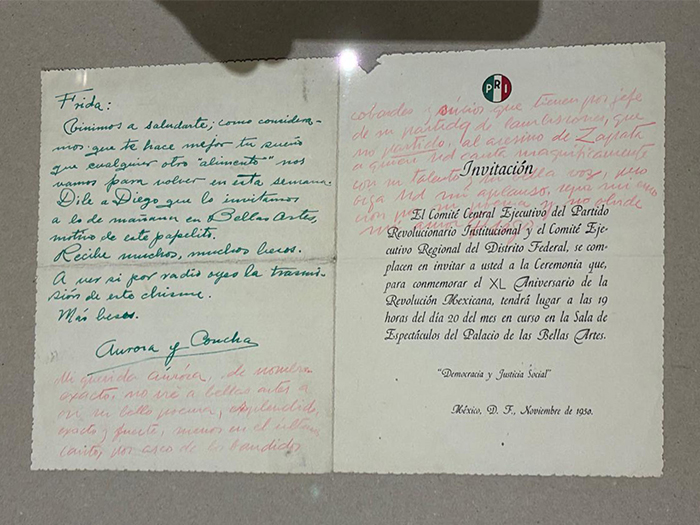 Frida:
Vinimos a saludarte; como considera-
mos que te hace mejor tu sueño
que cualquier otro "alimento" nos
vamos para volver en esta semana.
Dile a Diego que lo invitamos
a lo de mañana en Bellas Artes,
motivo de este papelito.
Recibe muchos, muchos besos.
A ver si por radio oyes la trasmi-
sión de este chisme.
Más besos.
Aurora y Concha
Mi querida Aurora, de nombre
exacto, no iré a bellas artes a
oir tu bello poema, espléndido,
exacto y fuerte, menos en el último
canto, por asco de los bandidos
PRI
cobardes y sucios que tienen por jefe
de su partida de ladrones, que
no partido, al asesino de Zapata
a quien Ud canta magníficamente
con su talento y bella voz, pero
oiga Ud mi aplauso,
Invitación
El Comité Central Ejecutivo del Partido
Revolucionario Institucional y el Comité Eje-
cutivo Regional del Distrito Federal, se com-
placen en invitar a usted a la Ceremonia que,
para conmemorar el XL Aniversario de la
Revolución Mexicana, tendrá lugar a las 19
horas del día 20 del mes en curso en la Sala de
Espectáculos del Palacio de las Bellas Artes.
"Democracia y Justicia Social"
México, D. F., Noviembre de 1950.